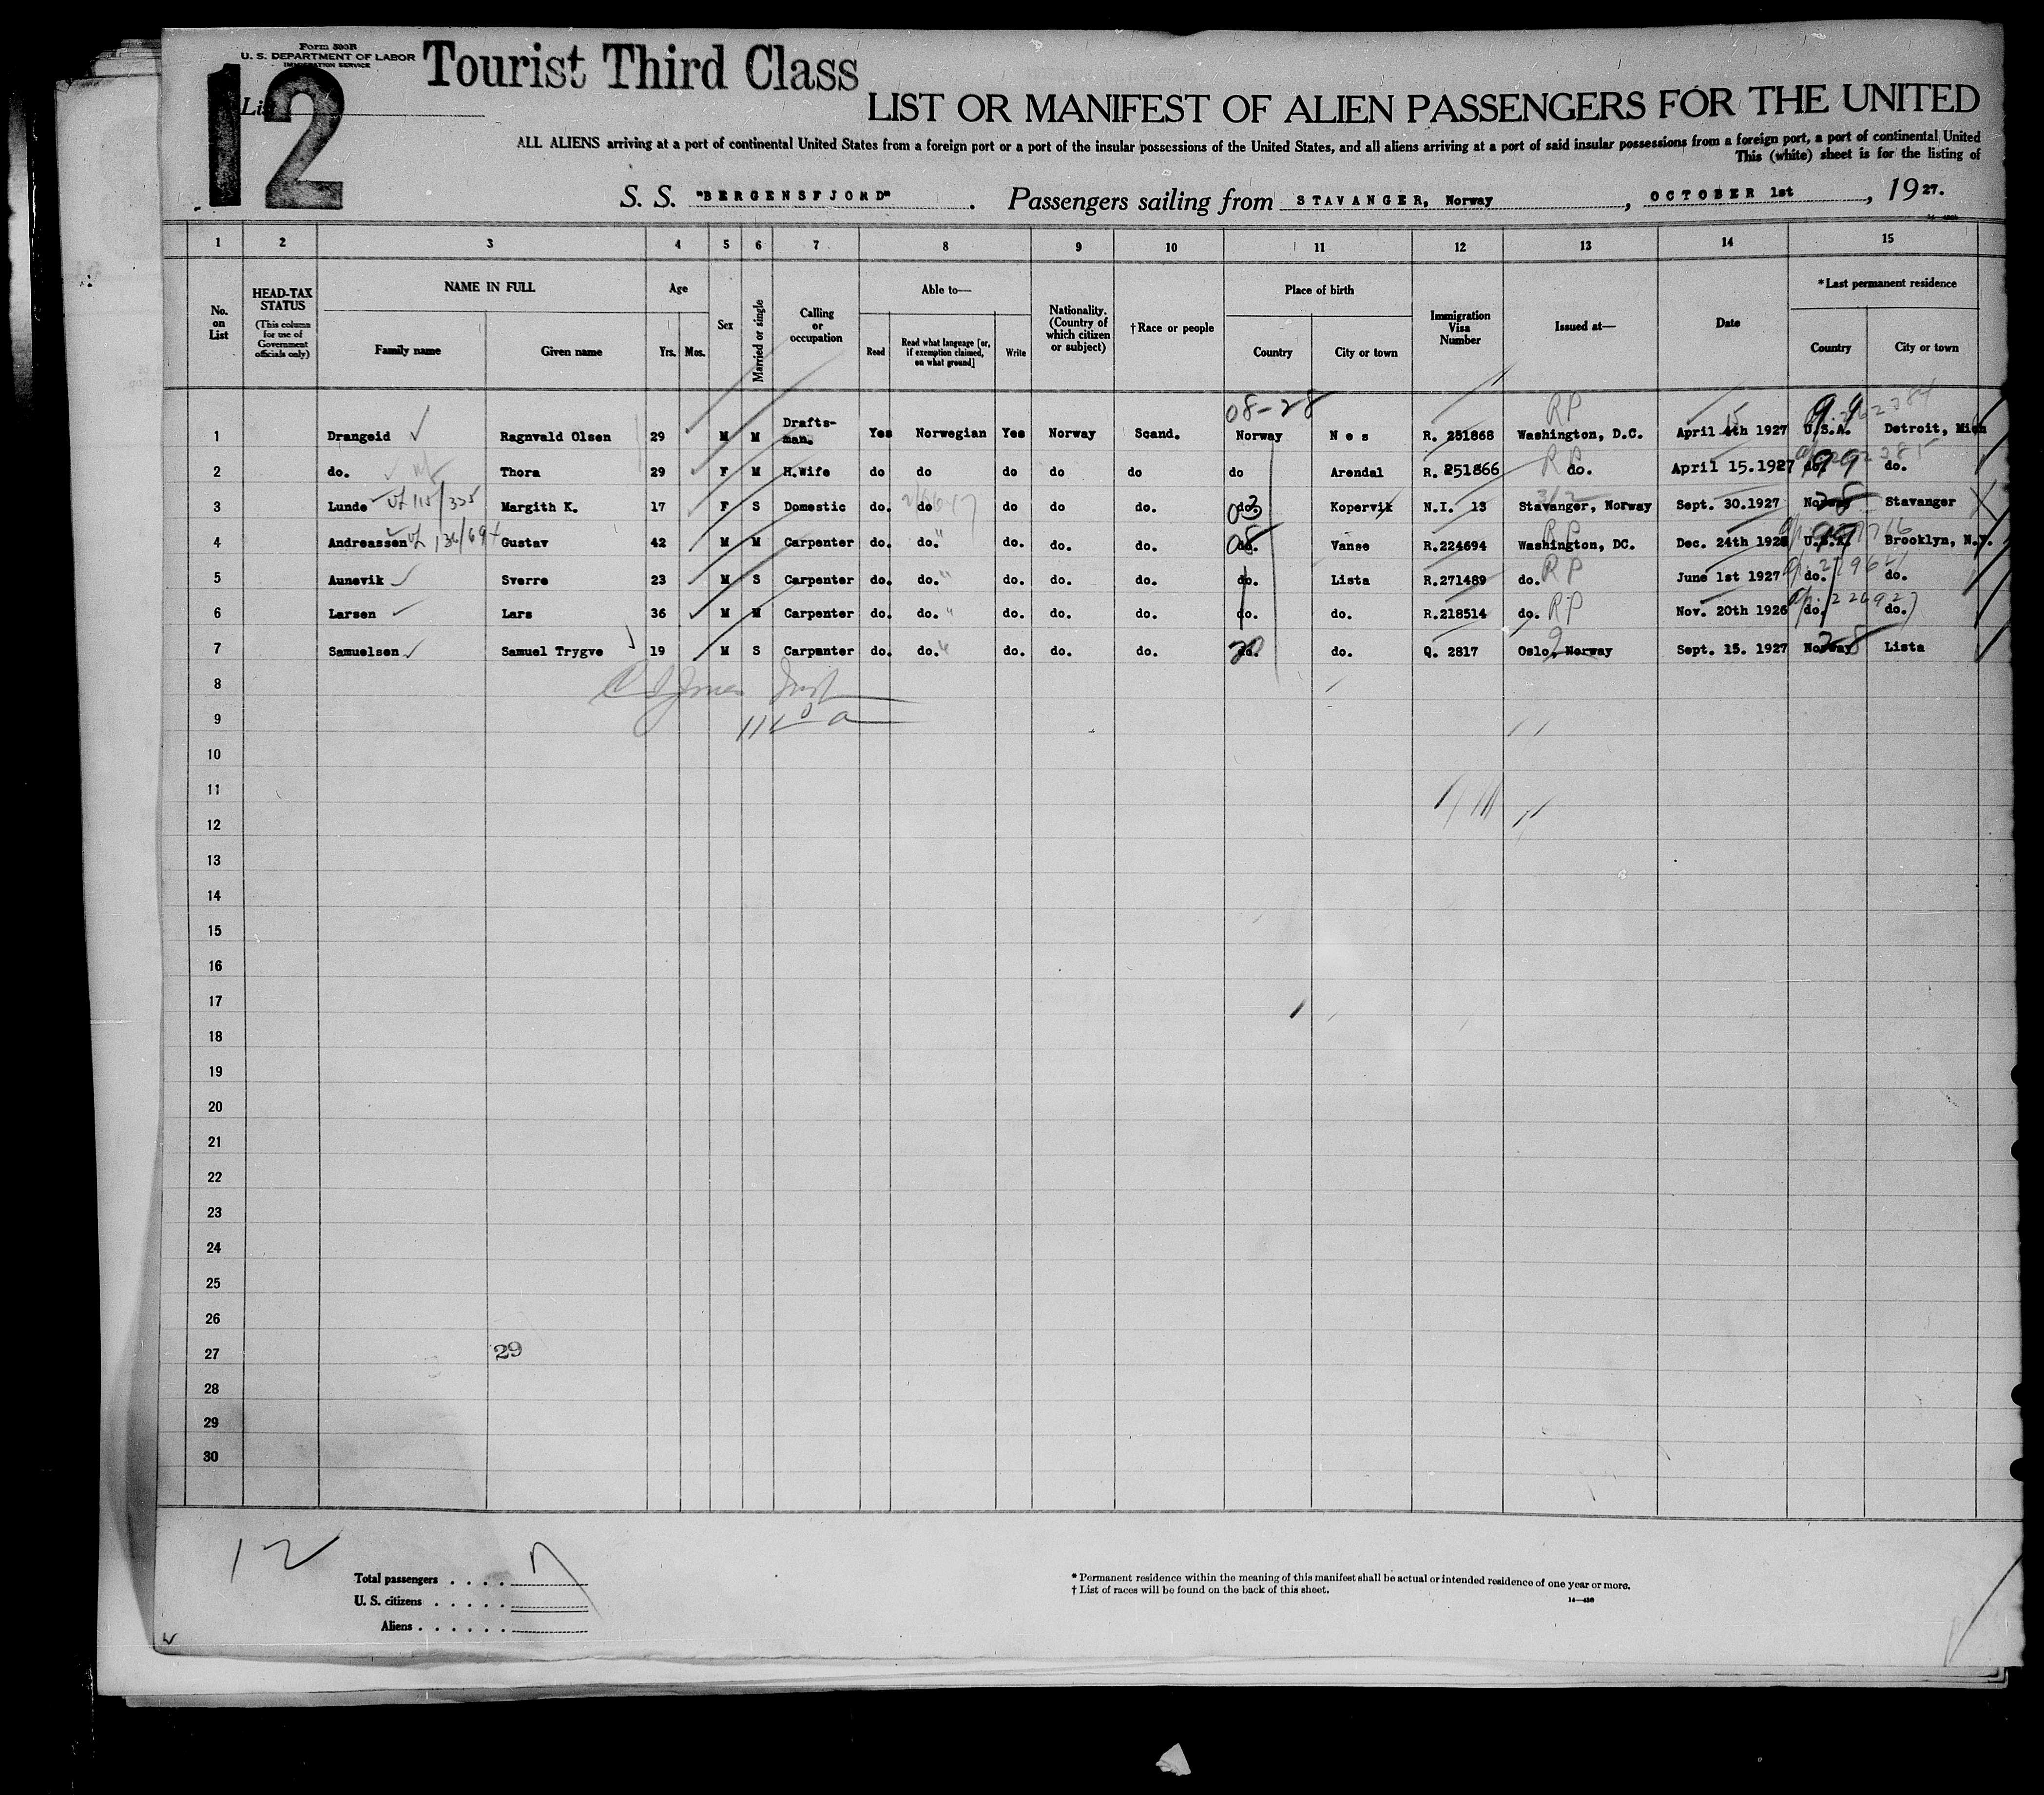 Form 500B
U. S. DEPARTMENT OF LABOR
IMMIGRATION SERVICE
Tourist Third Class
12
List
LIST OR MANIFEST OF ALIEN PASSENGERS FOR THE UNITED
ALL ALIENS arriving at a port of continental United States from a foreign port or a port of the insular possessions of the United States, and all aliens arriving at a port of said insular possessions from a foreign port, a port of continental United
This (white) sheet is for the listing of
S. S. "BERGENSFJORD". Passengers sailing from STAVANGER, Norway, OCTOBER 1st, 1927.
1 2 3 4 5 6 7 8 9 10 11 12 13 14 15
No. on List
HEAD-TAX STATUS (This column for use of Government officials only)
NAME IN FULL Family name Given name
Age Yrs. Mos.
Sex
Married or single
Calling or occupation
Able to— Read Read what language [or, if exemption claimed, on what ground] Write
Nationality. (Country of which citizen or subject)
†Race or people
Place of birth Country City or town
Immigration Visa Number
Issued at—
Date
*Last permanent residence Country City or town
08-28 RP 15 99
1 Drangeid Ragnvald Olsen 29 M M Drafts-man. Yes Norwegian Yes Norway Scand. Norway Nes R. 251868 Washington, D.C. April 4th 1927 U.S.A. Detroit, Mich
2 do. Thora 29 F M H.Wife do do do do do do Arendal R. 251866 RP do. April 15.1927 do. 99 do.
3 Lunde vf 115/335 Margith K. 17 F S Domestic do. do do do do. do. 03 Kopervik N.I. 13 Stavanger, Norway 312 Sept. 30.1927 Norway 28 Stavanger
4 Andreassen vf 136/694 Gustav 42 M M Carpenter do. do. do. do. do. do. 08 Vanse R.224694 Washington, DC. RP Dec. 24th 1926 U.S.A. 99 Brooklyn, N.Y.
5 Aunevik Sverre 23 M S Carpenter do. do. do. do. do. do. Lista R.271489 do. RP June 1st 1927 do. do.
6 Larsen Lars 36 M M Carpenter do. do. do. do. do. do. do. R.218514 do. RP Nov. 20th 1926 do. do.
7 Samuelsen Samuel Trygve 19 M S Carpenter do. do. do. do. do. do. 20 do. Q. 2817 Oslo, Norway 9 Sept. 15. 1927 Norway 28 Lista
8
9
10
11
12
13
14
15
16
17
18
19
20
21
22
23
24
25
26
27 29
28
29
30
12
Total passengers 7
U. S. citizens
Aliens
* Permanent residence within the meaning of this manifest shall be actual or intended residence of one year or more.
† List of races will be found on the back of this sheet.
14—430